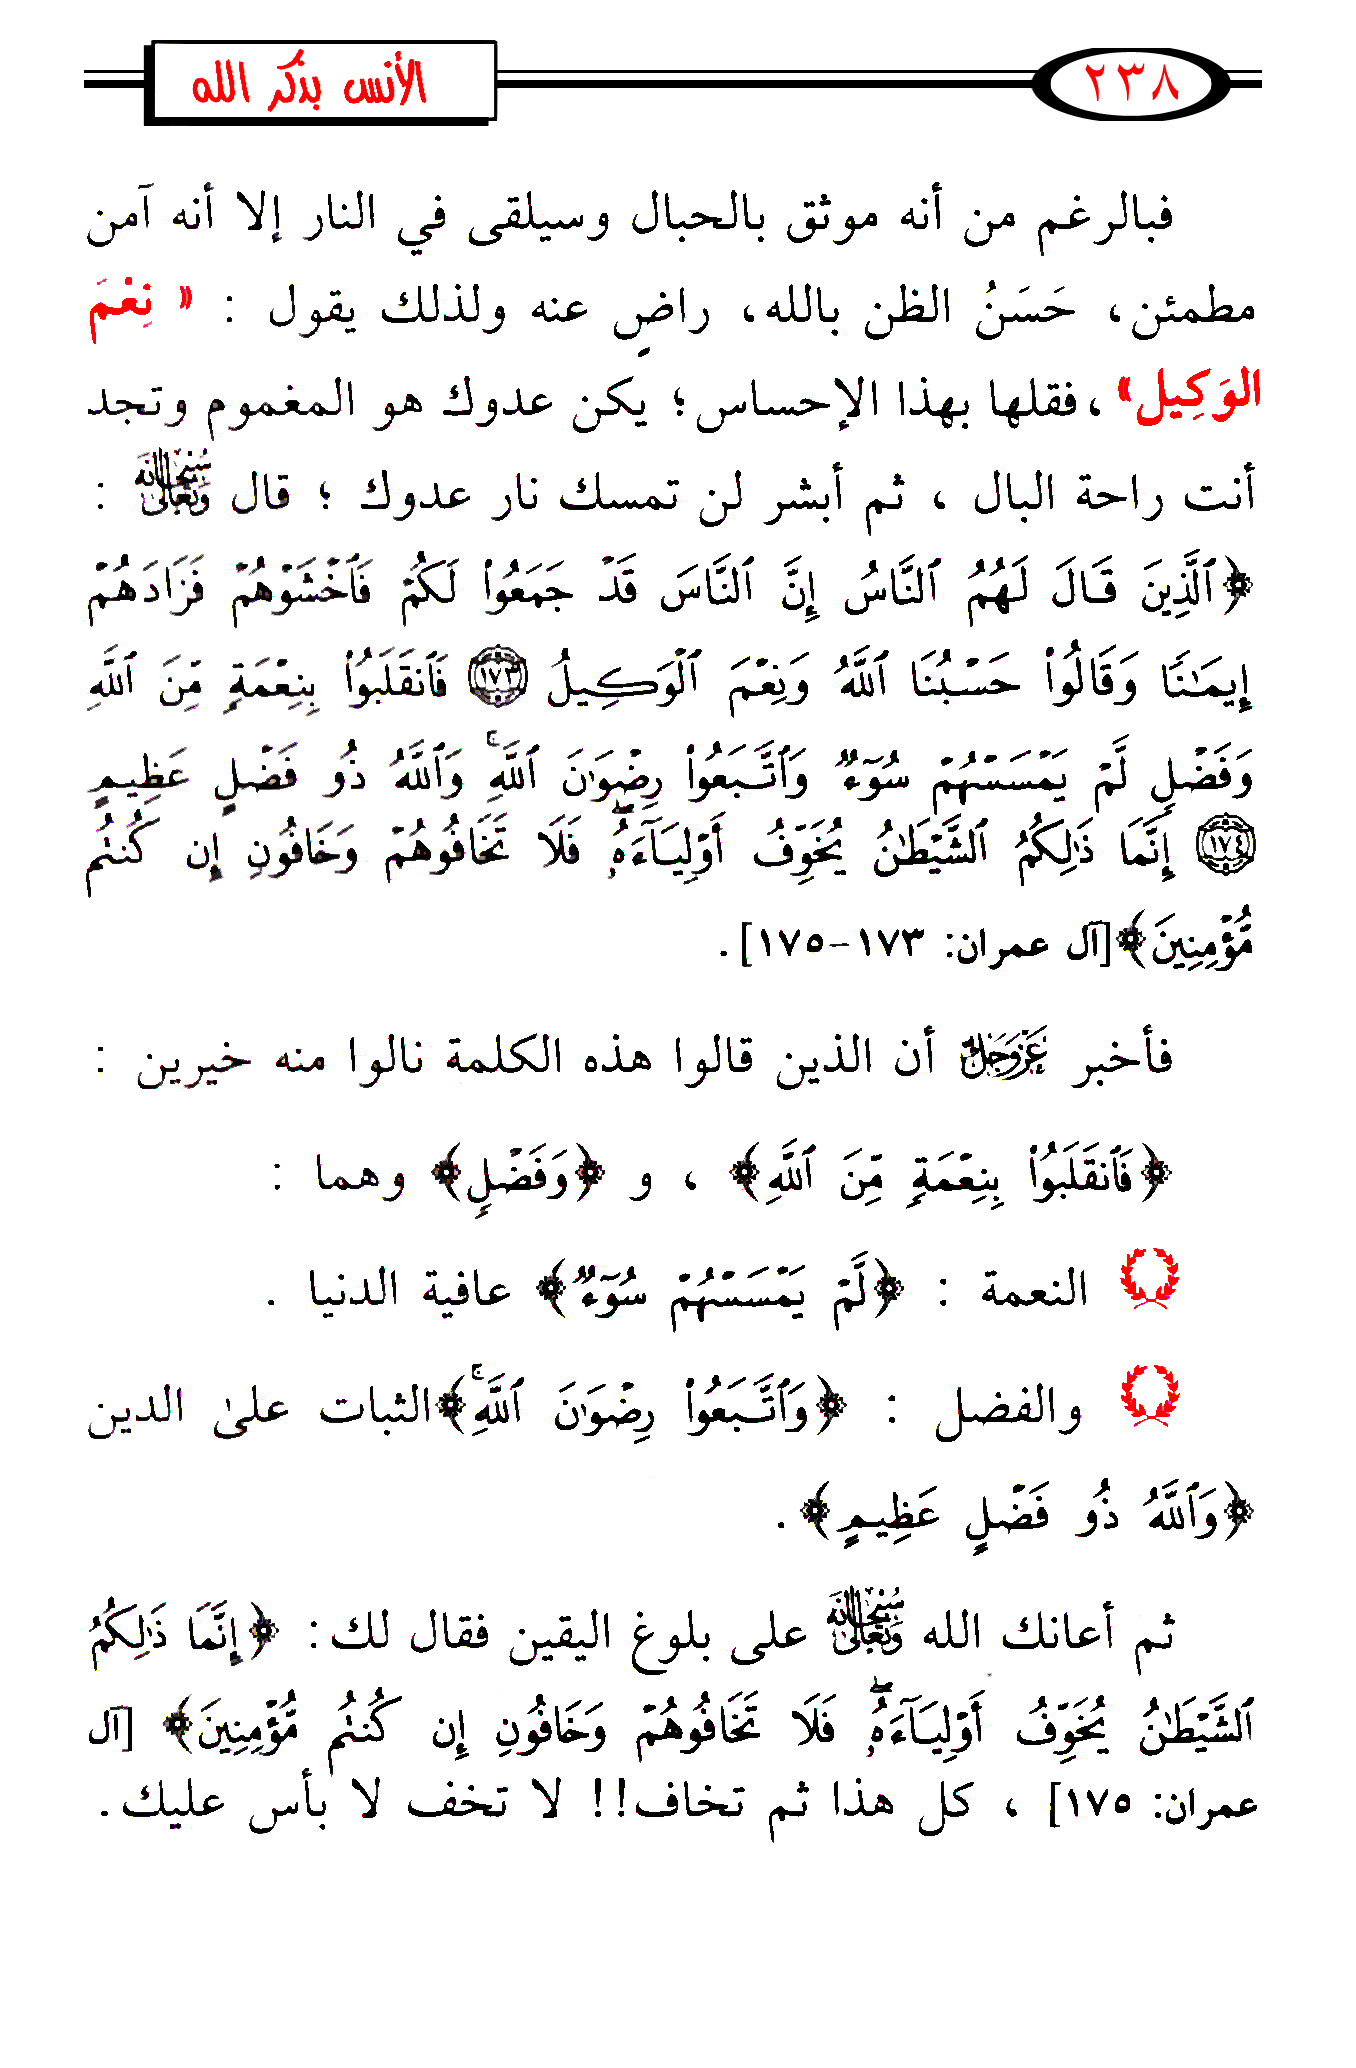 ٢٣٨
الأنس بذكر الله
فبالرغم من أنه موثق بالحبال وسيلقى في النار إلا أنه آمن
مطمئن، حَسَنُ الظن بالله، راضٍ عنه ولذلك يقول : « نِعْمَ
الوَكِيل» ،فقلها بهذا الإحساس؛ يكن عدوك هو المغموم وتجد
أنت راحة البال ، ثم أبشر لن تمسك نار عدوك ؛ قال سُبْحَانَهُ وَتَعَالَىٰ :
﴿ ٱلَّذِينَ قَالَ لَهُمُ ٱلنَّاسُ إِنَّ ٱلنَّاسَ قَدْ جَمَعُوا۟ لَكُمْ فَٱخْشَوْهُمْ فَزَادَهُمْ
إِيمَـٰنًا وَقَالُوا۟ حَسْبُنَا ٱللَّهُ وَنِعْمَ ٱلْوَكِيلُ ١٧٣ فَٱنقَلَبُوا۟ بِنِعْمَةٍ مِّنَ ٱللَّهِ
وَفَضْلٍ لَّمْ يَمْسَسْهُمْ سُوٓءٌ وَٱتَّبَعُوا۟ رِضْوَٰنَ ٱللَّهِ ۗ وَٱللَّهُ ذُو فَضْلٍ عَظِيمٍ
١٧٤ إِنَّمَا ذَٰلِكُمُ ٱلشَّيْطَـٰنُ يُخَوِّفُ أَوْلِيَآءَهُۥ فَلَا تَخَافُوهُمْ وَخَافُونِ إِن كُنتُم
مُّؤْمِنِينَ﴾ [آل عمران: ١٧٣-١٧٥] .
فأخبر عَزَّوَجَلَّ أن الذين قالوا هذه الكلمة نالوا منه خيرين :
﴿ فَٱنقَلَبُوا۟ بِنِعْمَةٍ مِّنَ ٱللَّهِ﴾ ، و ﴿وَفَضْلٍ﴾ وهما :
النعمة : ﴿لَّمْ يَمْسَسْهُمْ سُوٓءٌ﴾ عافية الدنيا .
والفضل : ﴿وَٱتَّبَعُوا۟ رِضْوَٰنَ ٱللَّهِ ۗ﴾الثبات علىٰ الدين
﴿وَٱللَّهُ ذُو فَضْلٍ عَظِيمٍ﴾ .
ثم أعانك الله سُبْحَانَهُ وَتَعَالَىٰ على بلوغ اليقين فقال لك: ﴿إِنَّمَا ذَٰلِكُمُ
ٱلشَّيْطَـٰنُ يُخَوِّفُ أَوْلِيَآءَهُۥ فَلَا تَخَافُوهُمْ وَخَافُونِ إِن كُنتُم مُّؤْمِنِينَ﴾ [آل
عمران: ١٧٥] ، كل هذا ثم تخاف!! لا تخف لا بأس عليك.